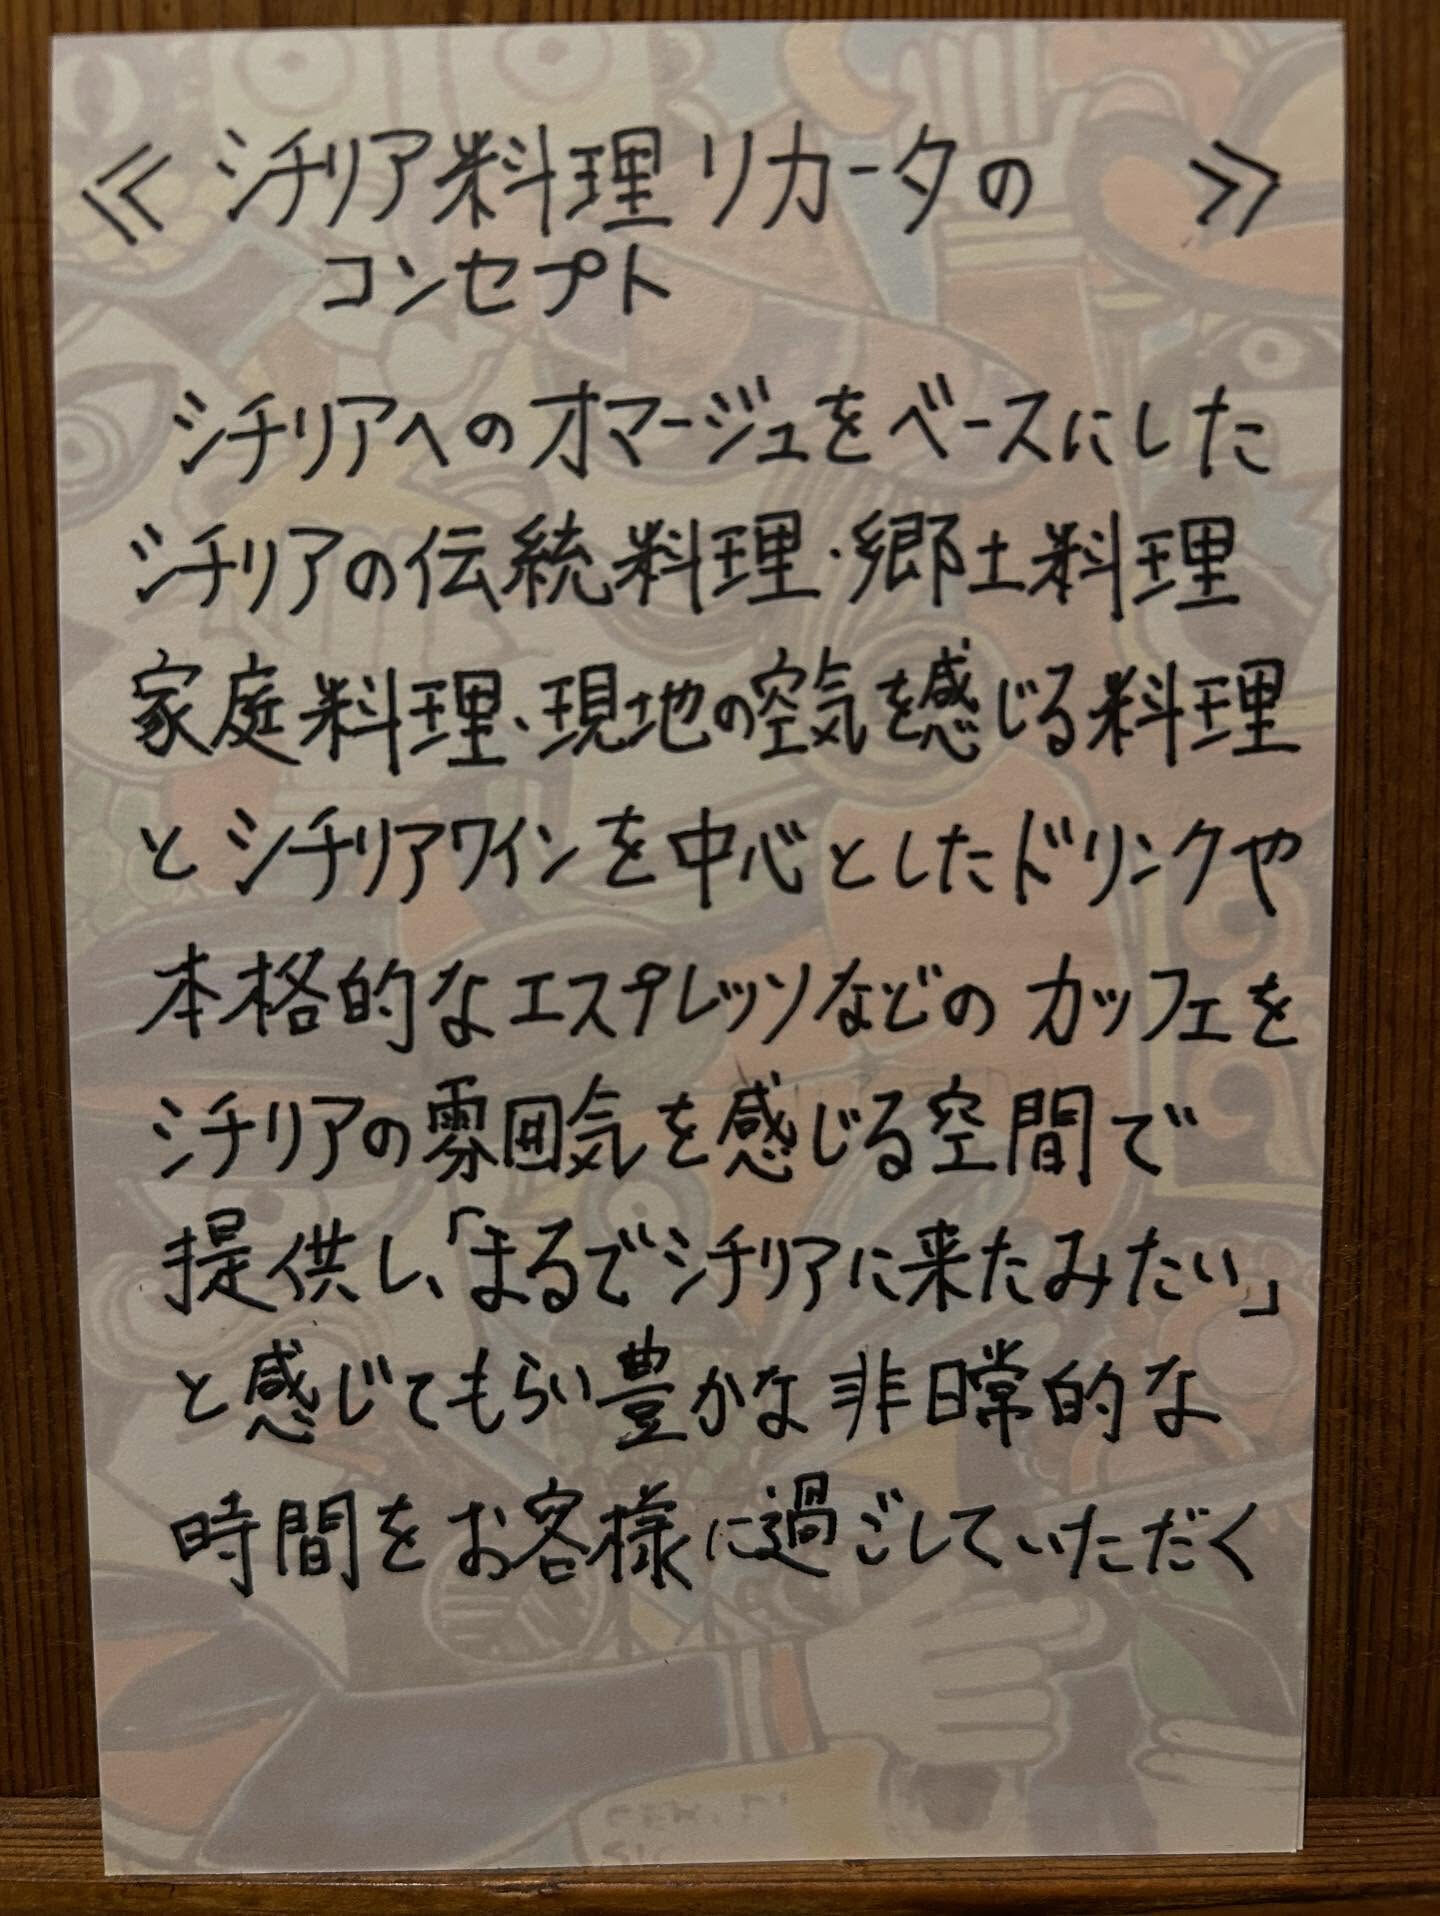 ≪シチリア料理リカータの≫
コンセプト
シチリアへのオマージュをベースにした
シチリアの伝統料理・郷土料理
家庭料理、現地の空気を感じる料理
とシチリアワインを中心としたドリンクや
本格的なエスプレッソなどのカッフェを
シチリアの雰囲気を感じる空間で
提供し、「まるでシチリアに来たみたい」
と感じてもらい豊かな非日常的な
時間をお客様に過ごしていただく